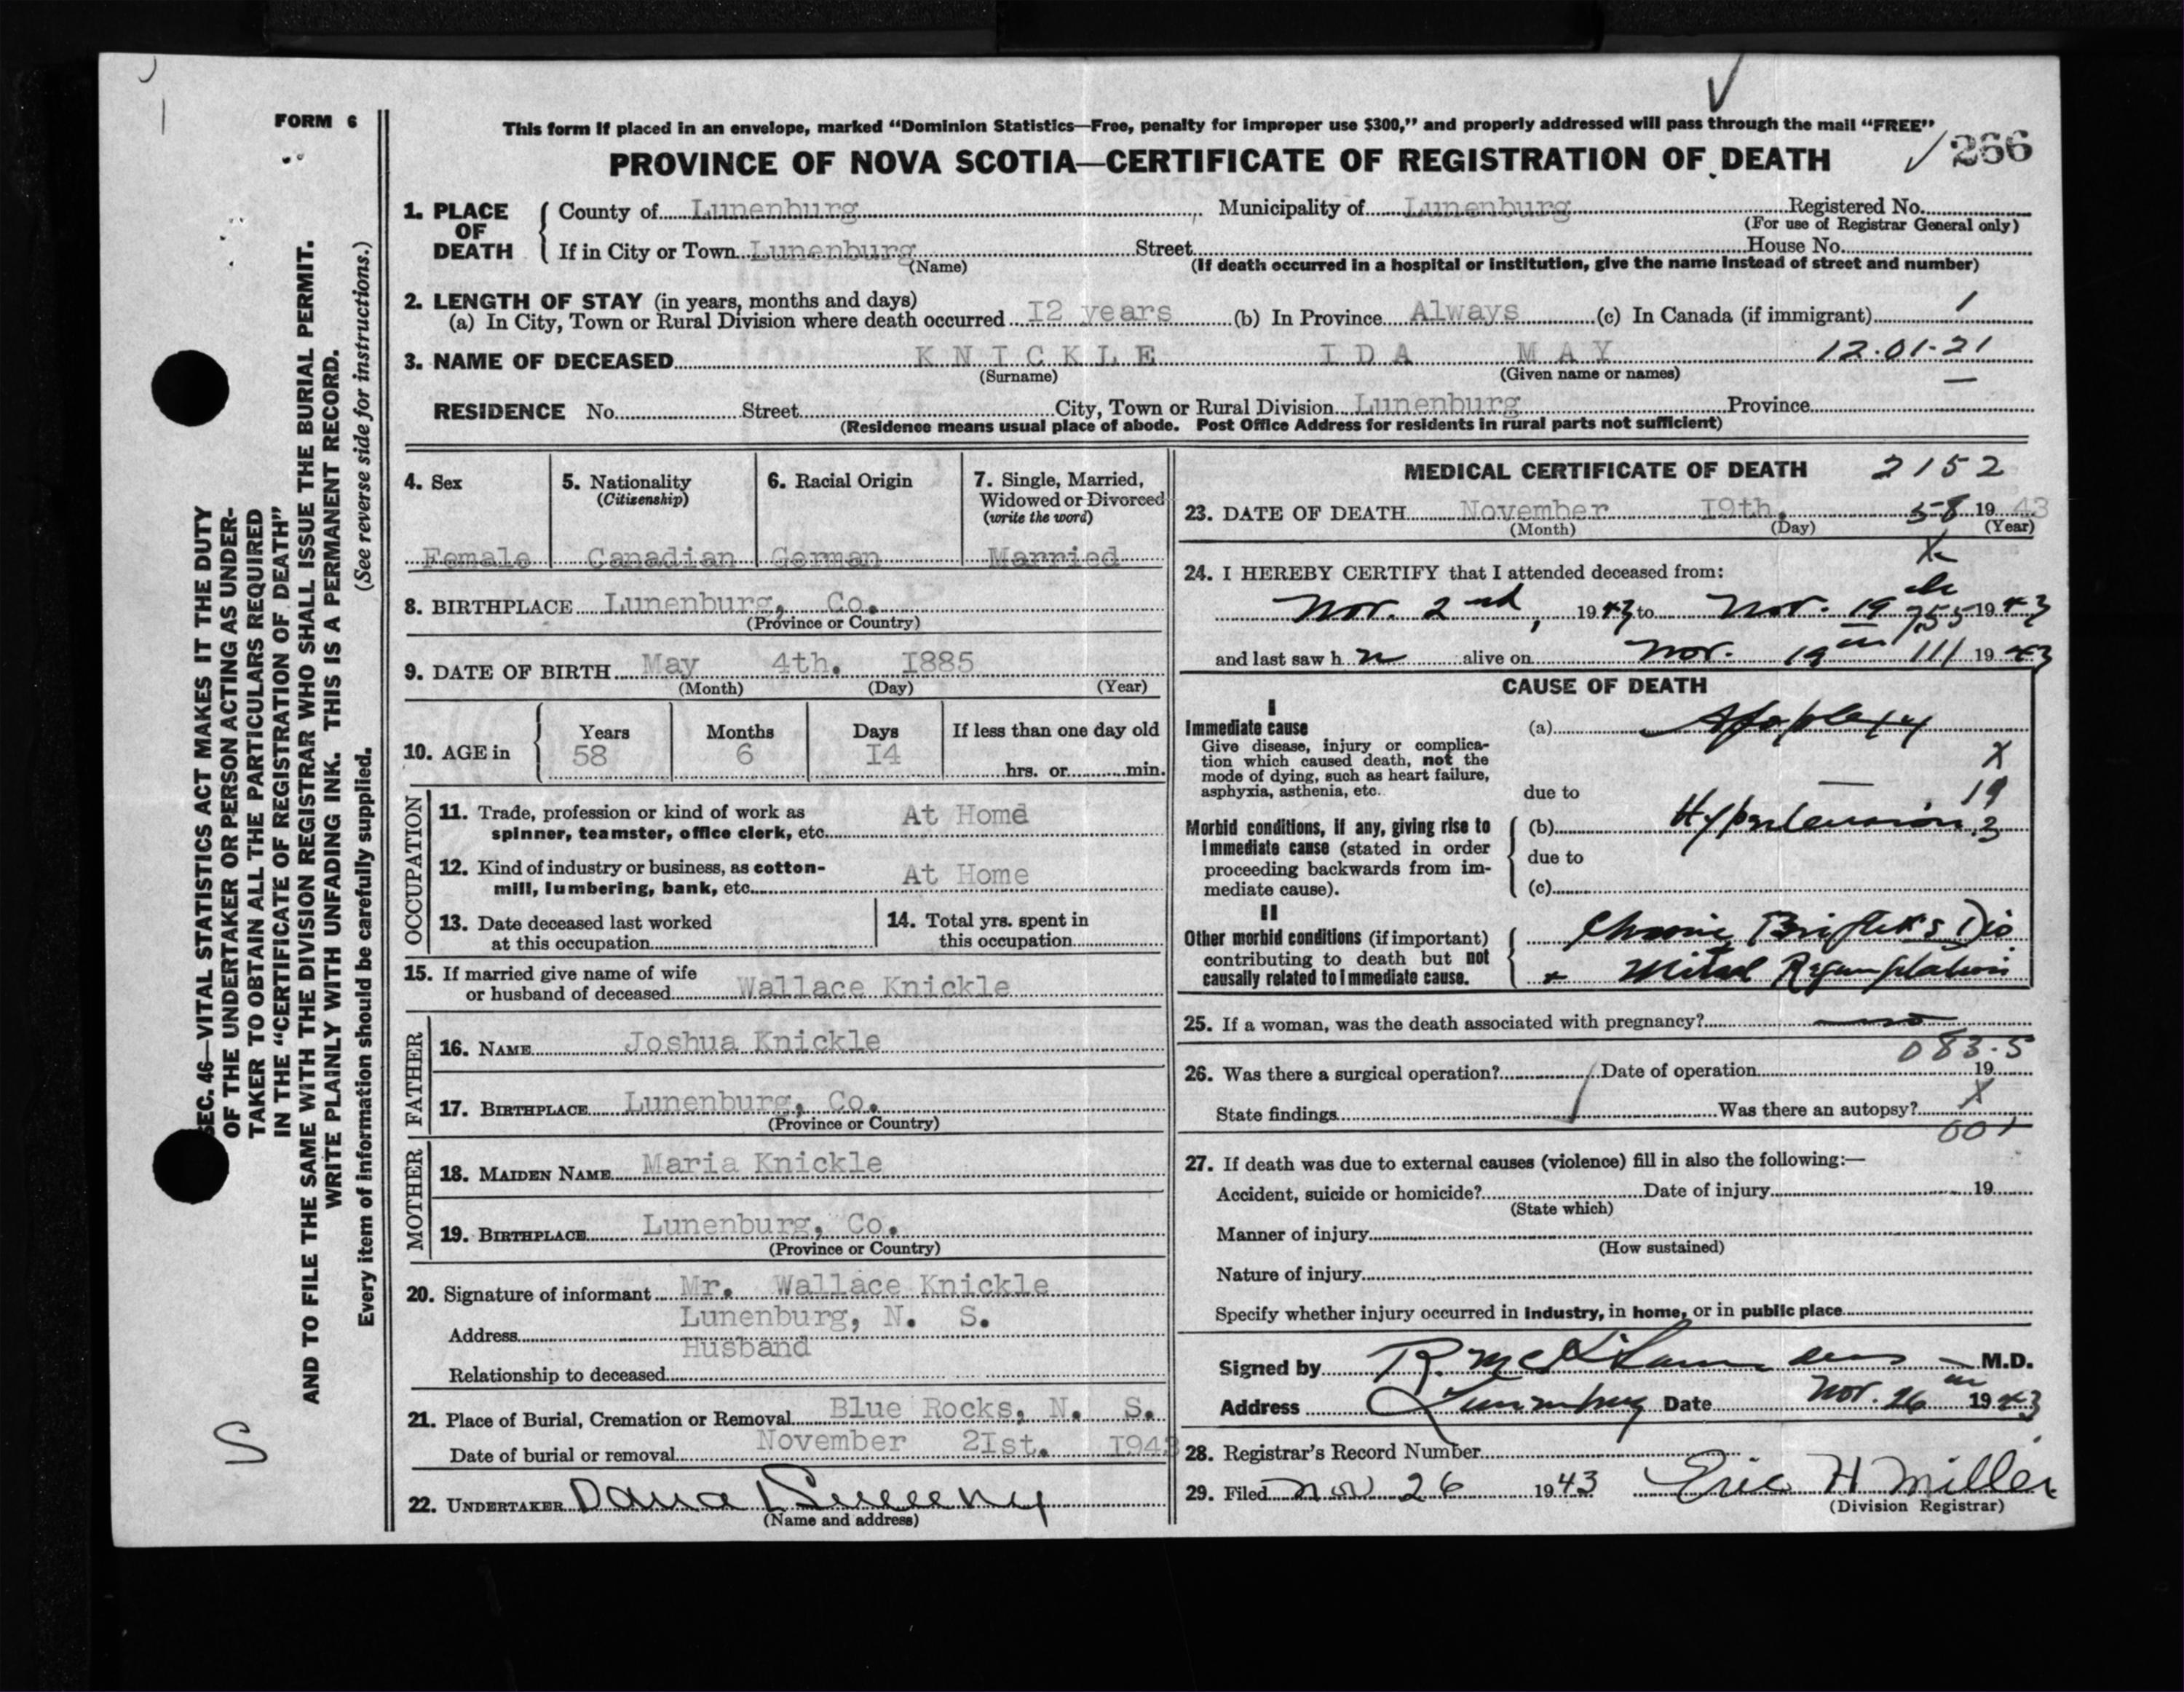 FORM 6
SEC. 46—VITAL STATISTICS ACT MAKES IT THE DUTY
OF THE UNDERTAKER OR PERSON ACTING AS UNDER-
TAKER TO OBTAIN ALL THE PARTICULARS REQUIRED
IN THE "CERTIFICATE OF REGISTRATION OF DEATH"
AND TO FILE THE SAME WITH THE DIVISION REGISTRAR WHO SHALL ISSUE THE BURIAL PERMIT.
WRITE PLAINLY WITH UNFADING INK. THIS IS A PERMANENT RECORD.
Every item of information should be carefully supplied. (See reverse side for instructions.)
S
This form if placed in an envelope, marked "Dominion Statistics—Free, penalty for improper use $300," and properly addressed will pass through the mail "FREE"
PROVINCE OF NOVA SCOTIA—CERTIFICATE OF REGISTRATION OF DEATH 266
1. PLACE OF DEATH
County of Lunenburg, Municipality of Lunenburg Registered No.
(For use of Registrar General only)
If in City or Town Lunenburg Street House No.
(Name) (If death occurred in a hospital or institution, give the name instead of street and number)
2. LENGTH OF STAY (in years, months and days)
(a) In City, Town or Rural Division where death occurred I2 years (b) In Province Always (c) In Canada (if immigrant) 1
3. NAME OF DECEASED KNICKLE IDA MAY 12.01.21
(Surname) (Given name or names)
RESIDENCE No. Street City, Town or Rural Division Lunenburg Province
(Residence means usual place of abode. Post Office Address for residents in rural parts not sufficient)
4. Sex
Female
5. Nationality
(Citizenship)
Canadian
6. Racial Origin
German
7. Single, Married,
Widowed or Divorced
(write the word)
Married
8. BIRTHPLACE Lunenburg, Co.
(Province or Country)
9. DATE OF BIRTH May 4th. I885
(Month) (Day) (Year)
10. AGE in
Years Months Days If less than one day old
58 6 I4
hrs. or min.
OCCUPATION
11. Trade, profession or kind of work as At Home
spinner, teamster, office clerk, etc.
12. Kind of industry or business, as cotton- At Home
mill, lumbering, bank, etc.
13. Date deceased last worked
at this occupation
14. Total yrs. spent in
this occupation
15. If married give name of wife
or husband of deceased Wallace Knickle
FATHER
16. NAME Joshua Knickle
17. BIRTHPLACE Lunenburg, Co.
(Province or Country)
MOTHER
18. MAIDEN NAME Maria Knickle
19. BIRTHPLACE Lunenburg, Co.
(Province or Country)
20. Signature of informant Mr. Wallace Knickle
Address Lunenburg, N. S.
Husband
Relationship to deceased
21. Place of Burial, Cremation or Removal Blue Rocks, N. S.
Date of burial or removal November 2Ist. I943
22. UNDERTAKER Sweeny
(Name and address)
MEDICAL CERTIFICATE OF DEATH 2152
23. DATE OF DEATH November I9th. 58 19 43
(Month) (Day) (Year)
X
24. I HEREBY CERTIFY that I attended deceased from:
Nov. 2nd, 1943 to Nov. 19th 1943
and last saw h alive on Nov. 19th 111 1943
CAUSE OF DEATH
I
Immediate cause
Give disease, injury or complica-
tion which caused death, not the
mode of dying, such as heart failure,
asphyxia, asthenia, etc.
(a) Apoplexy
X
due to 19
Morbid conditions, if any, giving rise to
immediate cause (stated in order
proceeding backwards from im-
mediate cause).
(b) Hypertension 3
due to
(c)
II
Other morbid conditions (if important)
contributing to death but not
causally related to immediate cause.
Chronic Bright's Dis
+ Mitral Regurgitation
25. If a woman, was the death associated with pregnancy? no
083.5
26. Was there a surgical operation? Date of operation 19
State findings Was there an autopsy? X
001
27. If death was due to external causes (violence) fill in also the following:—
Accident, suicide or homicide? Date of injury 19
(State which)
Manner of injury
(How sustained)
Nature of injury
Specify whether injury occurred in industry, in home, or in public place
Signed by M.D.
Address Lunenburg Date Nov. 26th 1943
28. Registrar's Record Number
29. Filed Nov 26 1943 Eric H Miller
(Division Registrar)